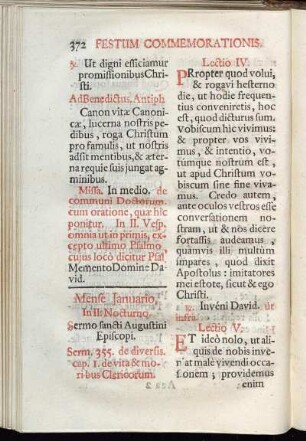 372 FESTUM COMMEMORATIONIS.
℟. Ut digni efficiamur
promissionibus Chri-
sti.
Ad Benedictus. Antiph.
Canon vitæ Canoni-
cæ, lucerna nostris pe-
dibus, roga Christum
pro famulis, ut nostris
adsit mentibus, & æter-
na requie suis jungat ag-
minibus.
Missa. In medio. de
communi Doctorum.
cum oratione, quæ hic
ponitur. In II. Vesp.
omnia ut in primis, ex-
cepto ultimo Psalmo,
cujus locô dicitur Psal.
Memento Domine Da-
vid.
Mense Januario.
In III Nocturno.
Sermo sancti Augustini
Episcopi.
Serm. 355. de diversis.
cap. 1. de vita & mo-
ribus Clericorum.
Lectio IV.
PRopter quod volui,
& rogavi hesterno
die, ut hodie frequen-
tius conveniretis, hoc
est, quod dicturus sum.
Vobiscum hic vivimus:
& propter vos vivi-
mus, & intentio, vo-
tumque nostrum est,
ut apud Christum vo-
biscum sine fine viva-
mus. Credo autem,
ante oculos vestros esse
conversationem no-
stram, ut & nos dicere
fortassis audeamus,
quamvis illi multùm
impares, quod dixit
Apostolus: imitatores
mei estote, sicut & ego
Christi.
℟. Invéni David. ut
infra.
Lectio V.
ET ideò nolo, ut ali-
quis de nobis inve-
niat malè vivendi occa-
sionem; providemus
enim